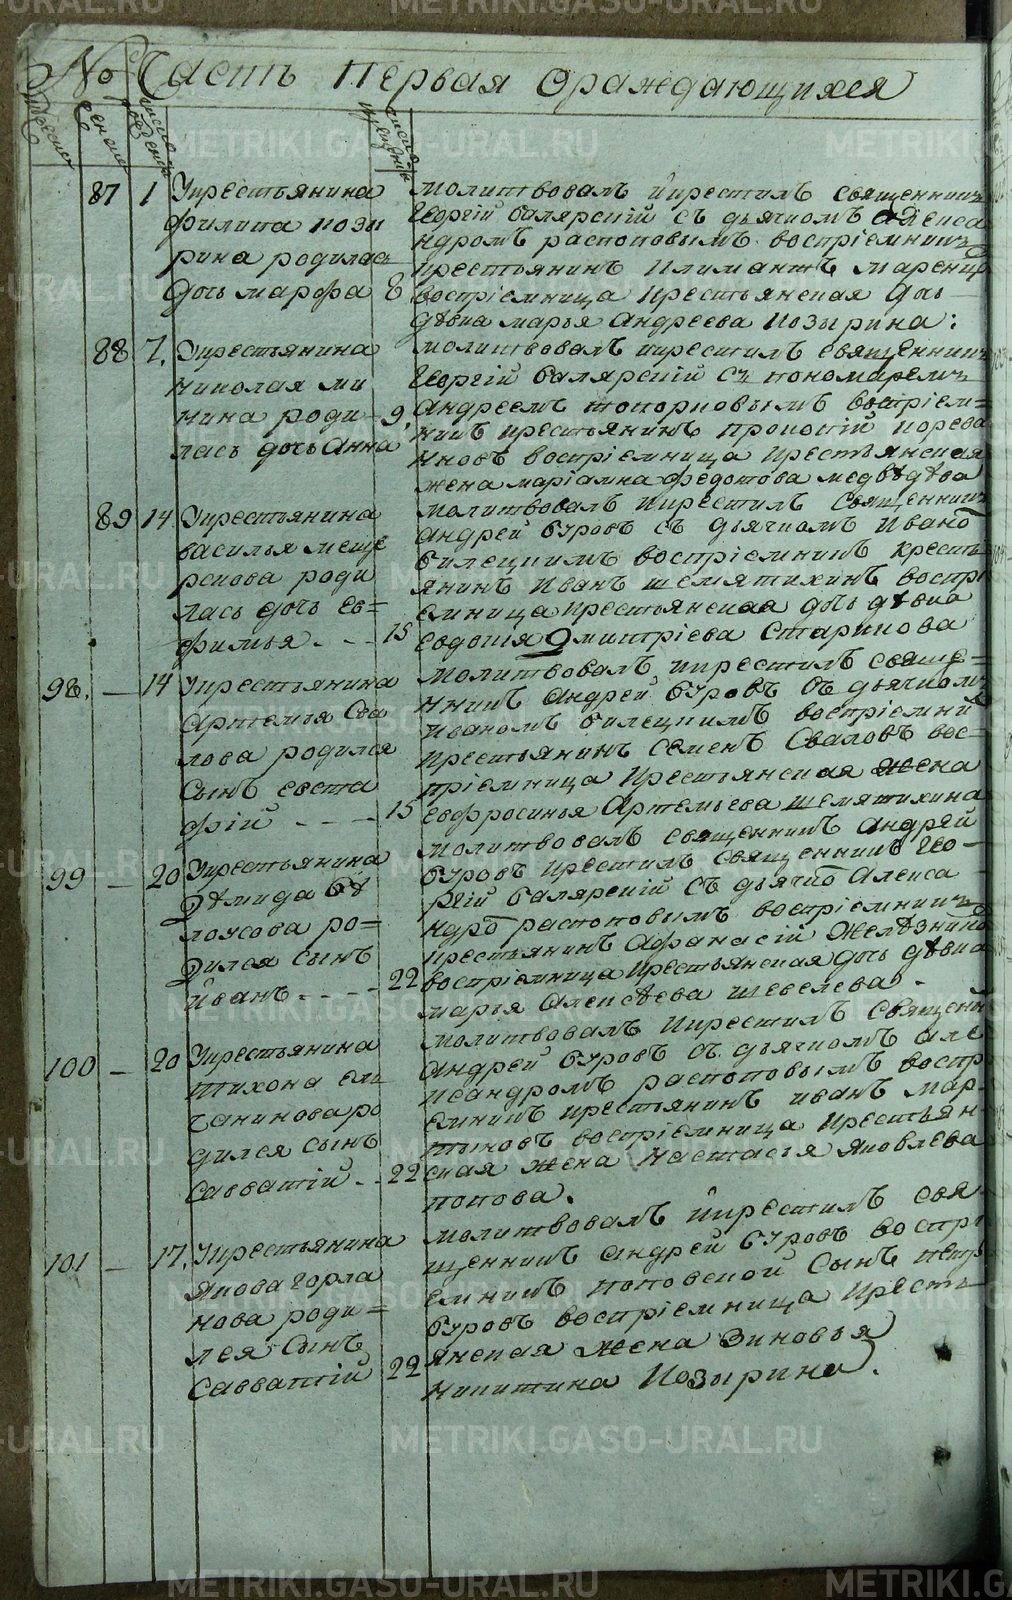 METRIKI.GASO-URAL.RU
№ Часть Первая Ораждающихся
мужеск
женск
число рождени
число крещени
87 1 Укрестьянина
Филипа кози
рина родилась
дочь марфа 8
молитвовалъ икрестилъ священникъ
Георгій балярскій съ дьячкомъ алекса
ндромъ распоповымъ воспріемникъ
крестьянинъ Климантъ
воспріемница крестьянская дочь
дѣвка марья андреева козырина:
88 7. Укрестьянина
николая ми
нина роди 9.
лась дочь анна
молитвовалъ икрестилъ священникъ
Георгій балярскій съ пономаремъ
андреемъ топорковымъ воспріем=
никъ крестьянинъ прокопій корева
новъ воспріемница крестьянская
жена маріамна федотова медвѣдѣва
89 14 Укрестьянина
василья меще
рскова роди
лась дочь ев=
фимья 15
молитвовалъ икрестилъ священникъ
андрей буровъ съ дьячкомъ Ивано
билецкимъ воспріемникъ кресть
янинъ Иванъ шемятихинъ воспрі
емница крестьянская дочь дѣвка
евдокія Дмитріева старикова
98. — 14 Укрестьянина
Артемья сва
лова родился
сынъ евста
фій 15
молитвовалъ икрестилъ свяще=
нникъ андрей буровъ съ дьячкомъ
иваномъ билецкимъ воспріемни
крестьянинъ семенъ сваловъ вос=
пріемница крестьянская жена
евфросинья Артемьева шемятихина
99 — 20 Укрестьянина
Дѣмида бѣ
лоусова ро=
дился сынъ
иванъ 22
молитвовалъ священникъ андрей
буровъ крестилъ священникъ гео
ргій балярскій съ дьячко алекса
ндро распоповымъ воспріемникъ
крестьянинъ афанасій желѣзнико
воспріемница крестьянская дочь дѣвка
марія алексѣева шевелева.
100 — 20 Укрестьянина
тихона ель
чанинова ро
дился сынъ
савватій 22
молитвовалъ икрестилъ священи
андрей буровъ съ дьячкомъ але
ксандромъ распоповымъ воспр
емникъ крестьянинъ иванъ мар
тыновъ воспріемница крестьян
ская жена настасія яковлева
попова.
101 — 17. Укрестьянина
якова горла
нова роди=
лся сынъ
савватій 22
молитвовалъ икрестилъ свя
щенникъ андрей буровъ воспрі
емникъ поповской сынъ петръ
буровъ воспріемница кресть
янская жена зиновья
никитина козырина.